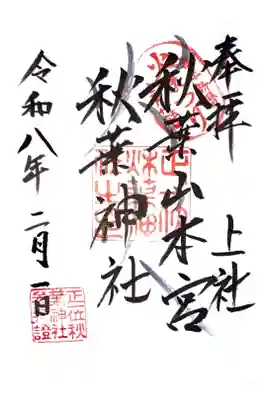 奉拝
上社
秋葉山本宮
秋葉神社
令和八年二月一日